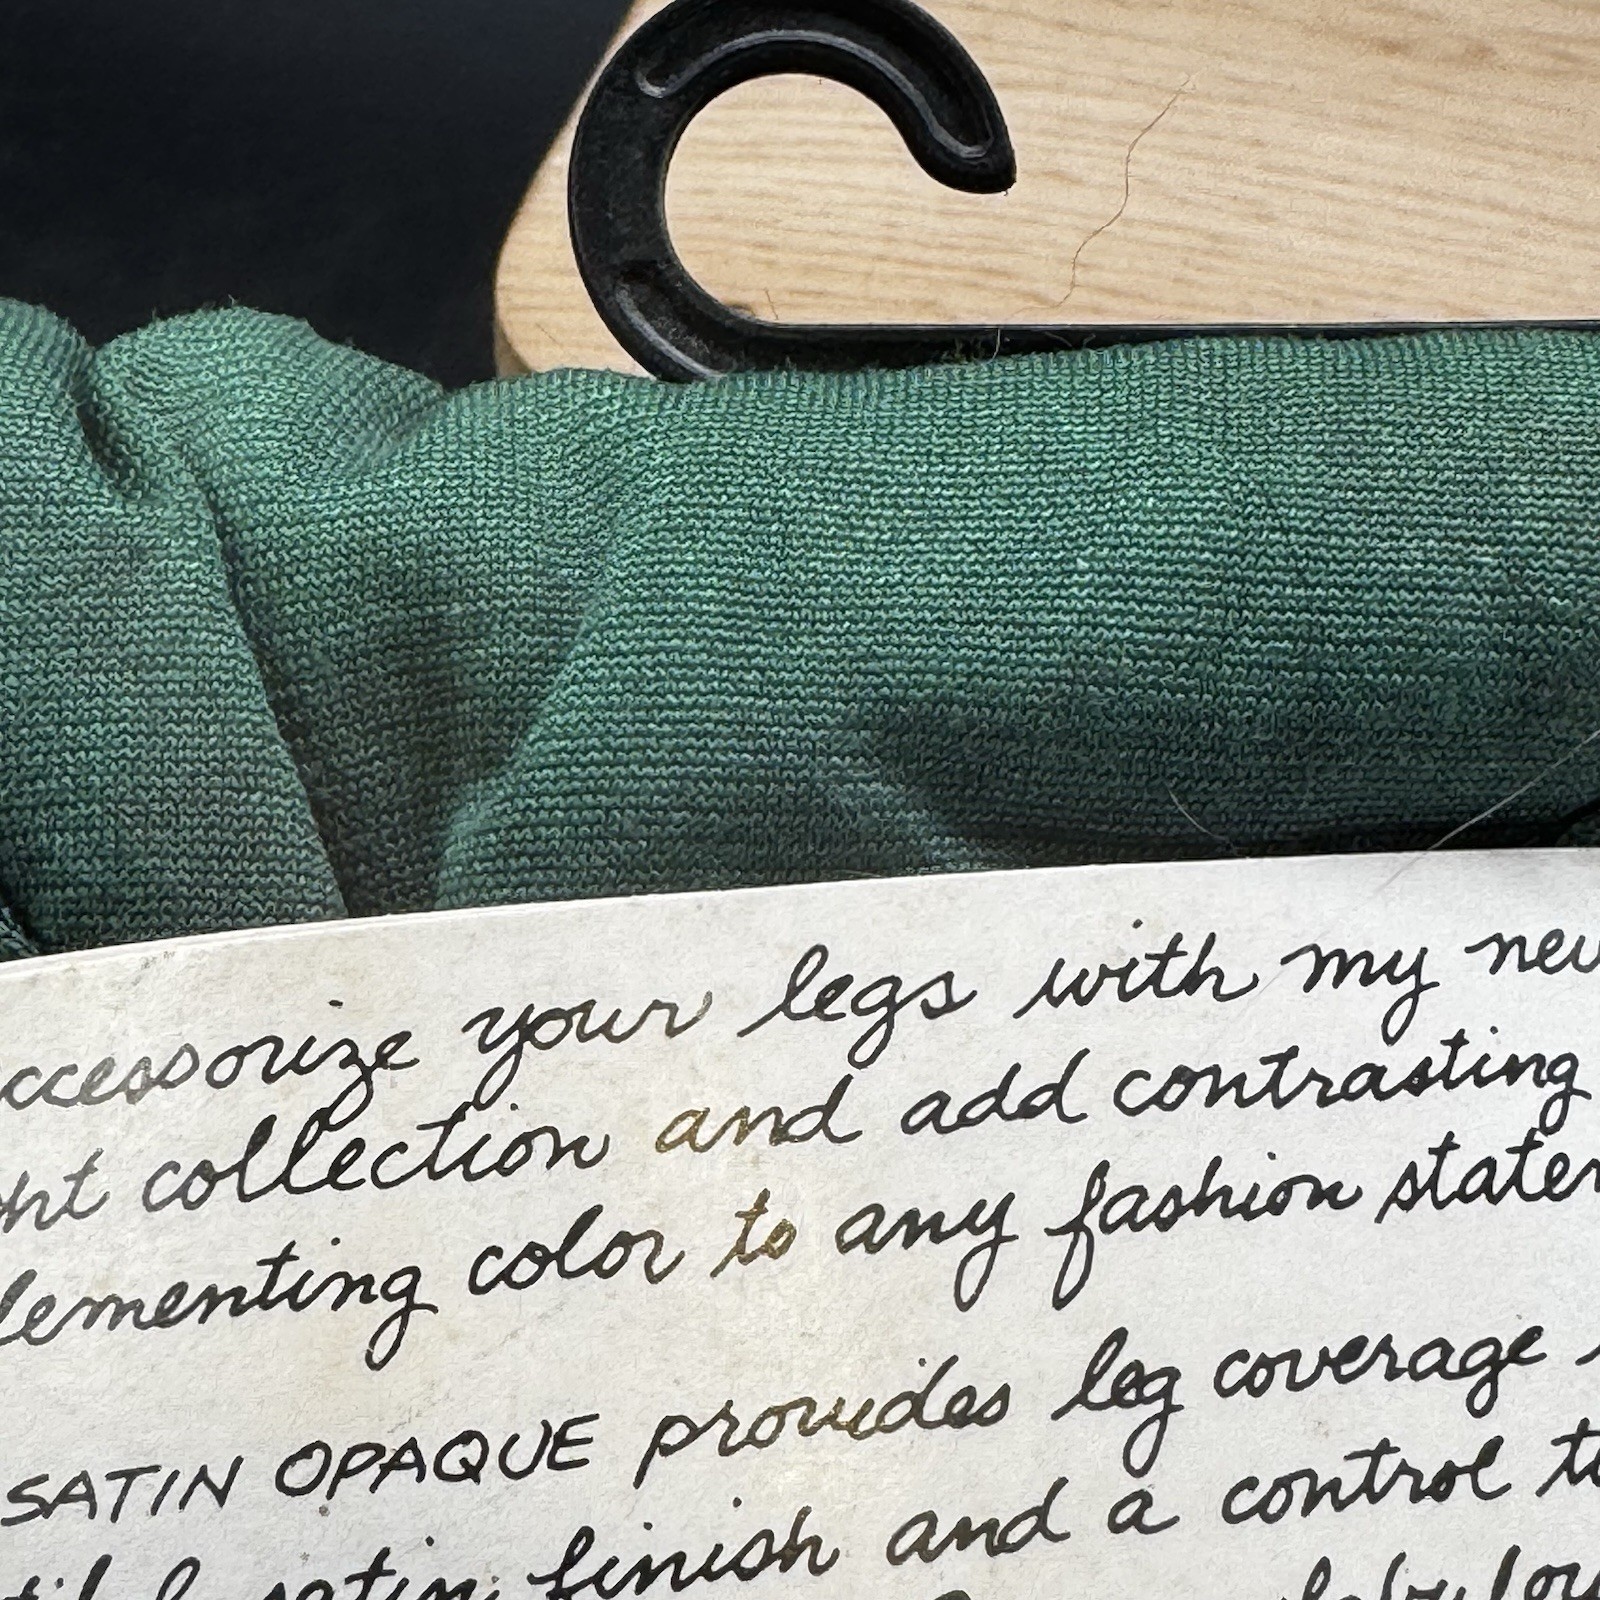 ccessorize your legs with my new
ght collection and add contrasting
lementing color to any fashion statem
SATIN OPAQUE provides leg coverage
satin finish and a control to